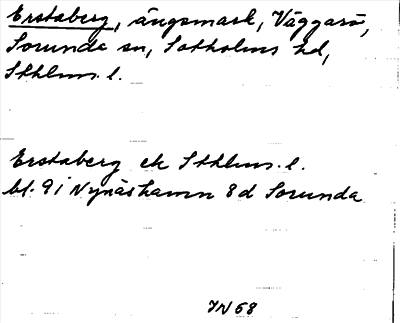 Erstaberg, ängsmark, Väggarö,
Sorunda sn, Sotholms hd,
Sthlms l.
Erstaberg ek Sthlms l.
bl. 9i Nynäshamn 8d Sorunda
IN 68